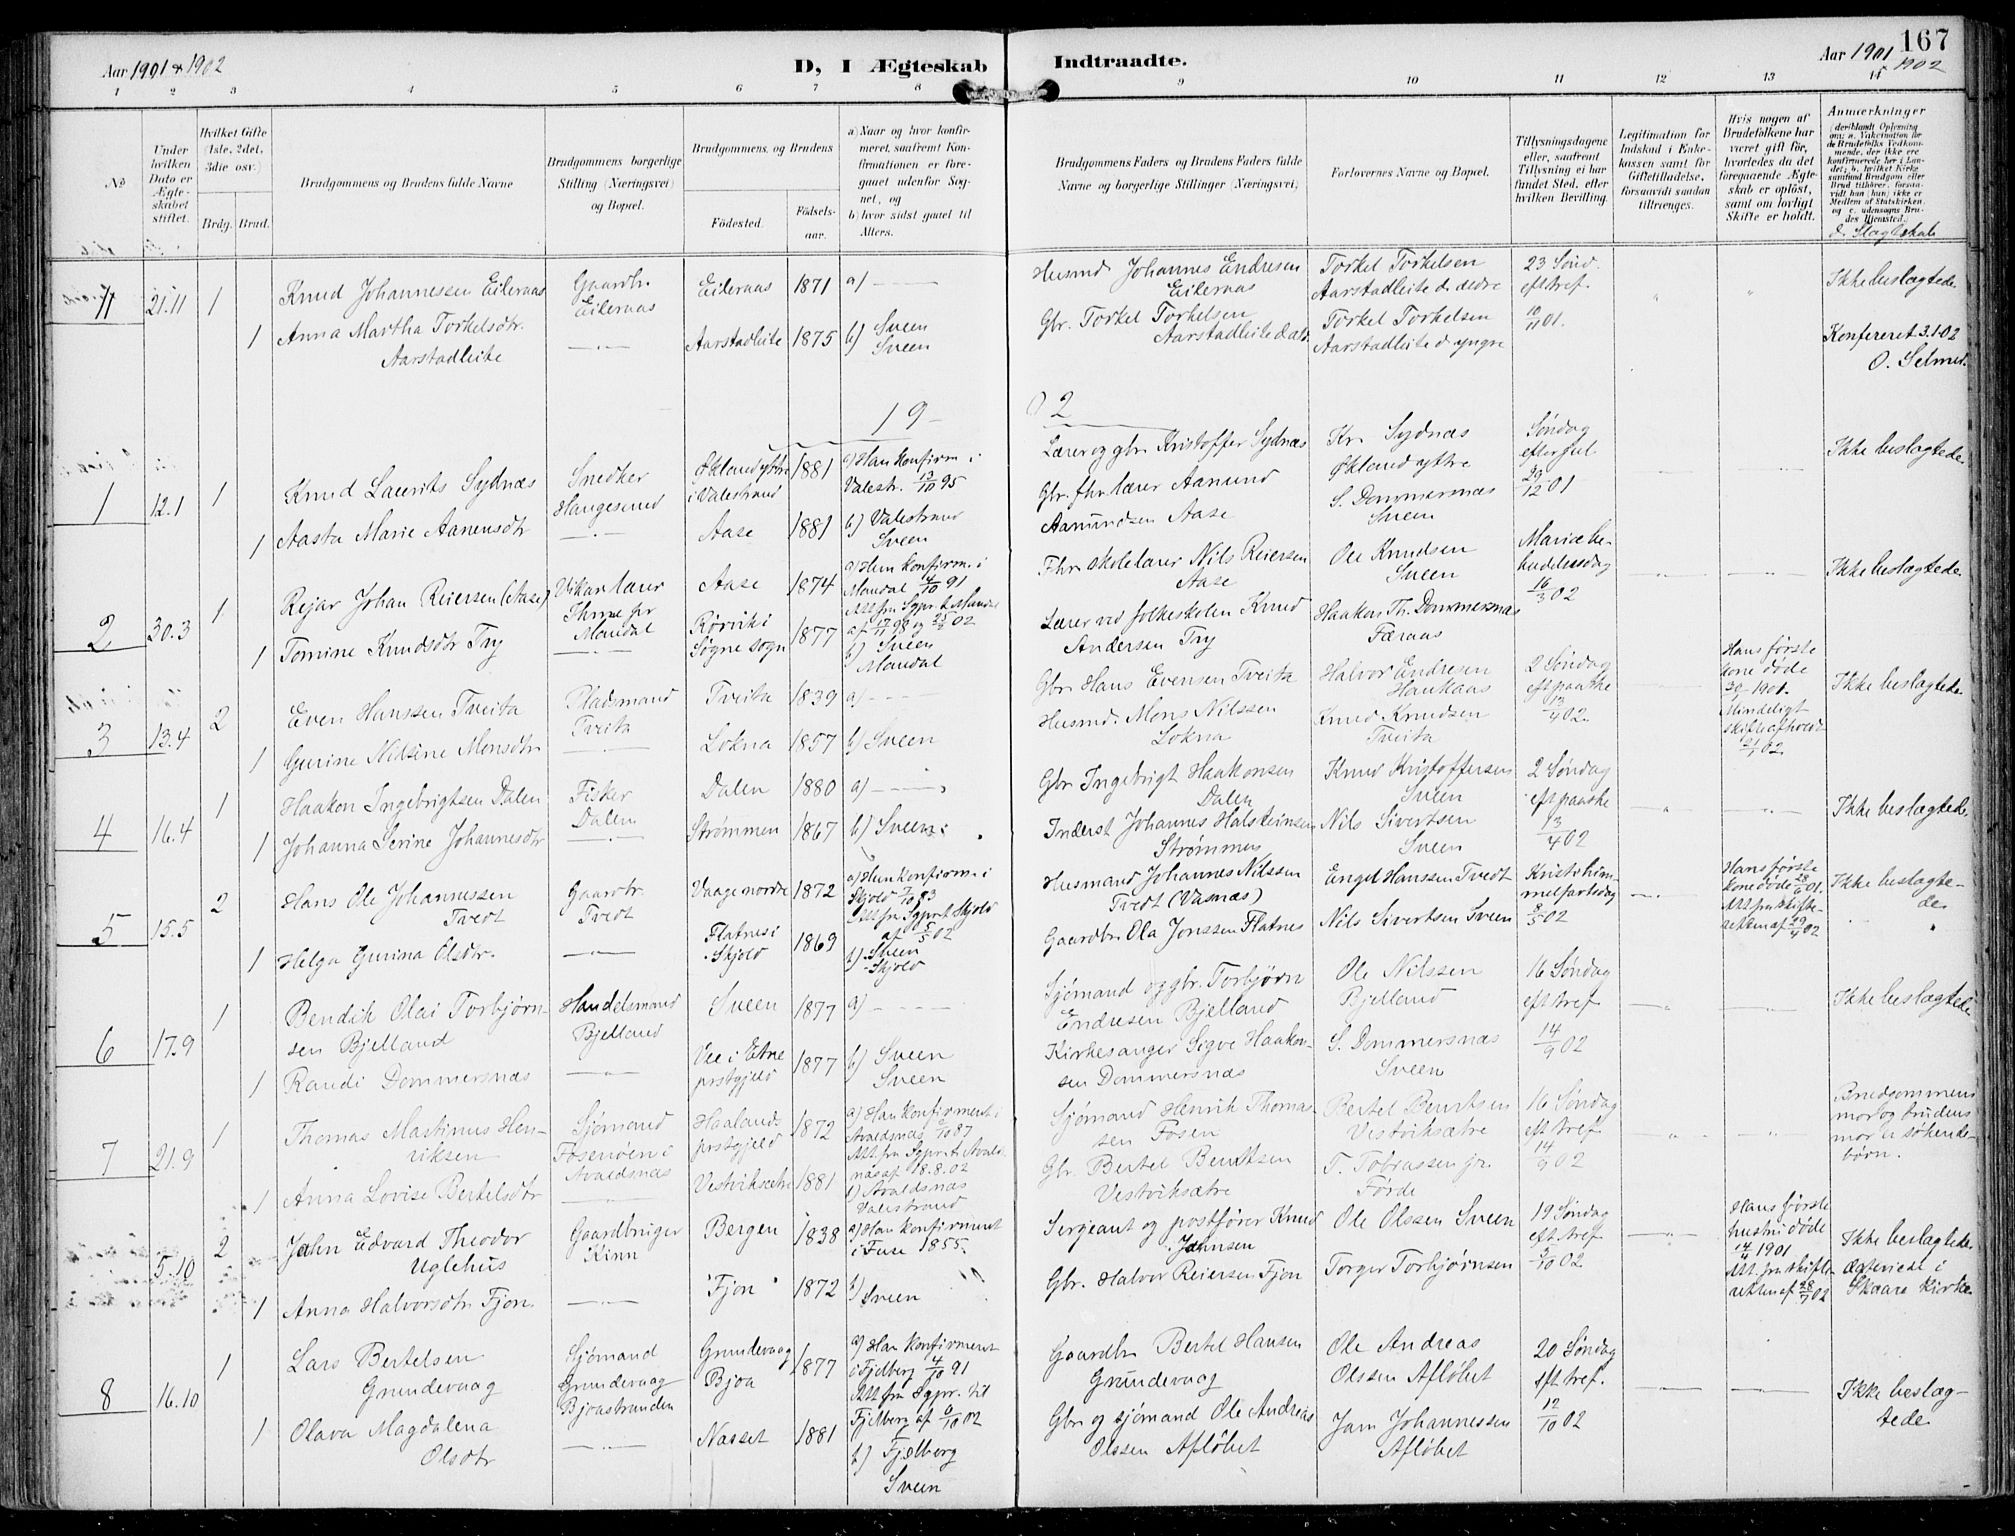 Aar 1901 & 1902
D, I Ægteskab Indtraadte.
Aar 1901 & 1902
167
1 2 3 4 5 6 7 8 9 10 11 12 13 14
No
Under hvilken Dato er Ægteskabet stiftet.
Hvilket Gifte (1ste, 2det, 3die osv.)
Brdg. Brud.
Brudgommens og Brudens fulde Navne
Brudgommens borgerlige Stilling (Næringsvei) og Bopæl.
Brudgommens og Brudens
Fødested.
Fødsels-aar.
a) Naar og hvor konfirmeret, saafremt Konfirmationen er foregaaet udenfor Sognet, og
b) hvor sidst gaaet til Alters.
Brudgommens Faders og Brudens Faders fulde Navne og borgerlige Stillinger (Næringsvei)
Forlovernes Navne og Bopæl.
Tillysningsdagene eller, saafremt Tillysning ei har fundet Sted, efter hvilken Bevilling.
Legitimation for Indskud i Enkekassen samt for Giftetilladelse, forsaavidt saadan tiltrænges.
Hvis nogen af Brudefolkene har været gift før, hvorledes da det foregaaende Ægteskab er opløst, samt om lovligt Skifte er holdt.
Anmærkninger
d. Slægtskab
11 21.11 1 Knud Johannessen Eileraas Gaardbr. Eileraas Eileraas 1871 a) — Husmd Johannes Endresen Eileraas Torkel Torkelsen Aarstadleite d. ældre 23 Sønd. eft tref. 10/11 01. Ikke beslægtede
1 Anna Martha Torkelsdtr. Aarstadleite Aarstadleite 1875 b) Sveen Sveen Gbr. Torkel Torkelsen Aarstadleite d. æld. Torkel Torkelsen Aarstadleite d yngre Konfereret 3.1.02 O. Selmer.
19 02
1 12.1 1 Knud Laurits Sydnæs Snedker Haugesund Økland yttre i Valestrand 1881 a) Han konfirm. i Valestr. 13/10 95 Lærer og gbr. Kristoffer Sydnæs Kr. Sydnæs Økland yttre Søndag efter jul 29/12 01 Ikke beslægtede
1 Aasta Marie Aanensdtr Aase 1881 b) Valestrand Sveen Gbr. fhr. lærer Aamund Aamundsen Aase S. Dommersnæs Sveen
2 30.3 1 Rejar Johan Reiersen (Aase) Vikarlærer Mandal Aase 1874 a) Han konfirm. i Mandal 4/10 91 Fhr. skolelærer Nils Reiersen Aase Ole Knudsen Sveen Mariæ bebudelsesdag 16/3 02 Ikke beslægtede
1 Tomine Knudsdtr Try Rørvik i Søgne sogn 1877 b) Sveen Mandal Lærer ved folkeskolen Knud Andersen Try Haakon Th. Dommersnæs Færaas
3 13.4 2 Even Hanssen Tveita Pladsmand Tveita Tveita 1839 a) — Gbr Hans Evensen Tveita Halvor Endresen Haukaas 2 Søndag eft paaske 13/4 02. Hans første kone døde 1901. Mindeligt skifte afholdt 21/1 02 Ikke beslægtede
1 Gurine Nilsine Monsdtr Lokna 1857 b) Sveen Husmd. Mons Nilssen Lokna Knud Knudsen Tveita
4 16.4 1 Haakon Ingebrigtsen Dalen Fisker Dalen Dalen 1880 a) — Gbr Ingebrigt Haakonsen Dalen Knud Kristoffersen Sveen 2 Søndag eft paaske 13/4 02 Ikke beslægtede
1 Johanna Serine Johannesdtr Strømmen 1867 b) Sveen Inderst Johannes Halsteinsen Strømmen Nils Sivertsen Sveen
5 15.5 2 Hans Ole Johannessen Tvedt Gaardbr. Tvedt Vaage nordre 1872 a) Hun konfirm. i Skjold 7/10 83 Att fra Sgpr. t. Skjold af 5/5 02 Husmand Johannes Nilssen Tvedt (Vasnæs) Engel Hanssen Tvedt Kristi himmelfartsdag 8/5 02 Hans første kone døde 28/6 01. Att fra skifteretten af 29/4 02 Ikke beslægtede
1 Helga Gurina Olsdtr. Flatnes i Skjold 1869 b) Sveen Skjold Gaardbr Ola Jonssen Flatnes Nils Sivertsen Sveen
6 17.9 1 Bendik Olai Torbjørnsen Bjelland Handelsmand Bjelland Sveen 1877 a) — Sjømand og gbr. Torbjørn Endresen Bjelland Ole Nilssen Bjelland 16 Søndag eft tref 14/9 02 Ikke beslægtede
1 Randi Dommersnæs Vee i Etne prstgjeld 1877 b) Sveen Sveen Kirkesanger Sigve Haakonsen Dommersnæs S. Dommersnæs Sveen
7 21.9 1 Thomas Martinus Henriksen Sjømand Fosenøen i Avaldsnæs Haalands prstgjeld 1872 a) Han konfirmeret i Avaldsnæs 87 Att fra Sgpr. t. Avaldsnæs af 18.8.02 Sjømand Henrik Thomassen Fosen Bertel Bentsen Vestviksætre 16 Søndag eft tref. 14/9 02 Brudgommens mor og brudens mor er søskendebørn.
1 Anna Lovise Bertelsdtr Vestviksætre 1881 b) Avaldsnæs Valestrand Gbr. Bertel Bentsen Vestviksætre T. Tobiassen jr. Førde
5.10 2 John Edvard Theodor Uglehus Gaardbruger Kinn Bergen 1838 a) Han konfirmeret i Fuse 1855. Sergeant og postfører Knud Johnsen Ole Olssen Sveen 19 Søndag eft tref 5/10 02 Hans første hustru døde 14/4 1901 Att fra skifteretten af 28/7 02 Ikke beslægtede Ægteviede i Skaare kirke
1 Anna Halvorsdtr Fjon. Fjon 1872 b) Sveen Gbr. Halvor Reiersen Fjon Torger Torbjørnsen
8 16.10 1 Lars Bertelsen Grundevaag Sjømand Grundevaag Bjoastranden Grundevaag Bjoa 1877 a) Han konfirmeret i Fjelberg 4/10 91 Att fra Sgpr. til Fjelberg af 6/10 02 Gaardbr Bertel Hansen Grundevaag Ole Andreas Olssen Afløbet 20 Søndag eft tref. 12/10 02 Ikke beslægtede
1 Olava Magdalena Olsdtr Næsset 1881 b) Fjelberg Sveen Gbr og sjømand Ole Andreas Olssen Afløbet Jam Johannessen Afløbet